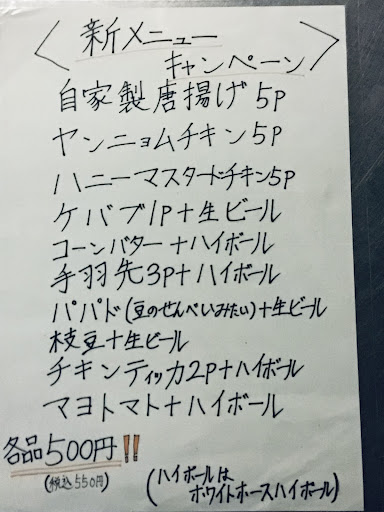 〈新メニュー
キャンペーン〉
自家製唐揚げ5P
ヤンニョムチキン5P
ハニーマスタードチキン5P
ケバブ1P+生ビール
コーンバター+ハイボール
手羽先3P+ハイボール
パパド(豆のせんべいみたい)+生ビール
枝豆+生ビール
チキンティッカ2P+ハイボール
マヨトマト+ハイボール
各品500円!!
(税込550円)
(ハイボールは
ホワイトホースハイボール)